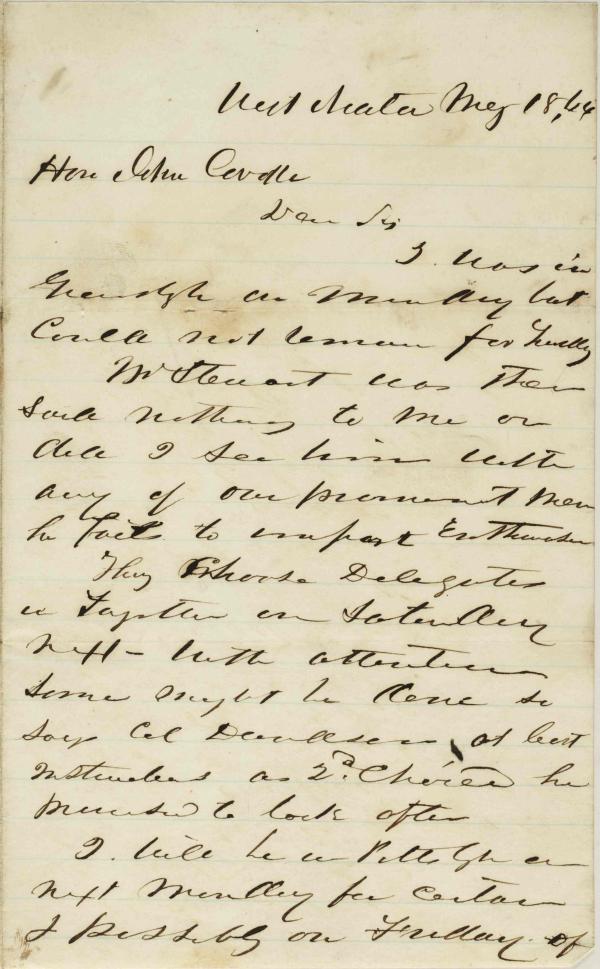 West Newton May 18, 64
Hon John Covode
Dear Sir
I was in
Greensbgh on Monday but
Could not remain for Tuesday
Mr Stewart was there
said nothing to me or
did I see him with
any of our prominent men
he fails to impart Enthusiasm
They Choose Delegates
in Fayette on Saturday
next – with attention
some might be done so
says Col Davidson, at least
instructions as 2d. Choice he
promised to look after
I will be in Pittsbgh on
next Monday for certain
& Possibly on Friday of